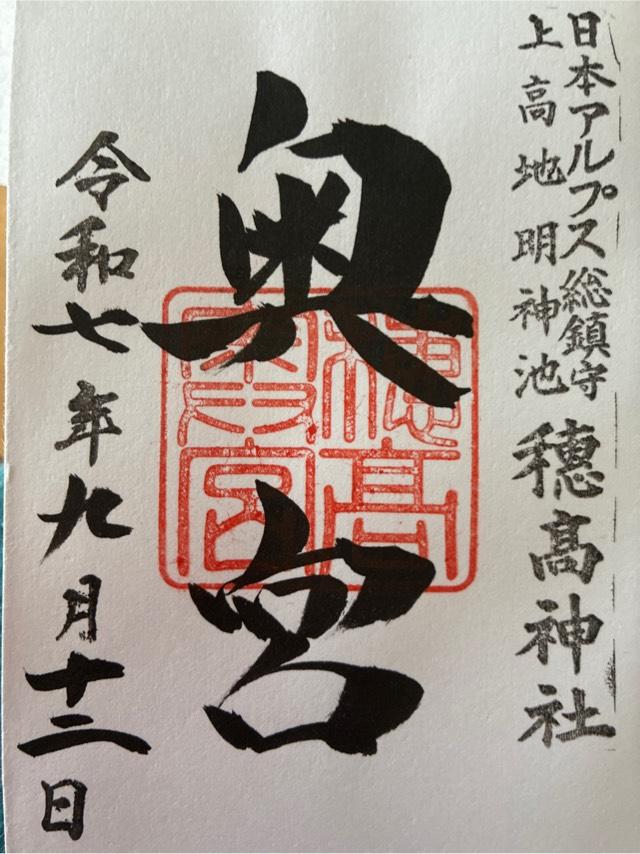 日本アルプス総鎮守
上高地明神池
穂髙神社
奥宮
穂髙奥宮
令和七年九月十二日